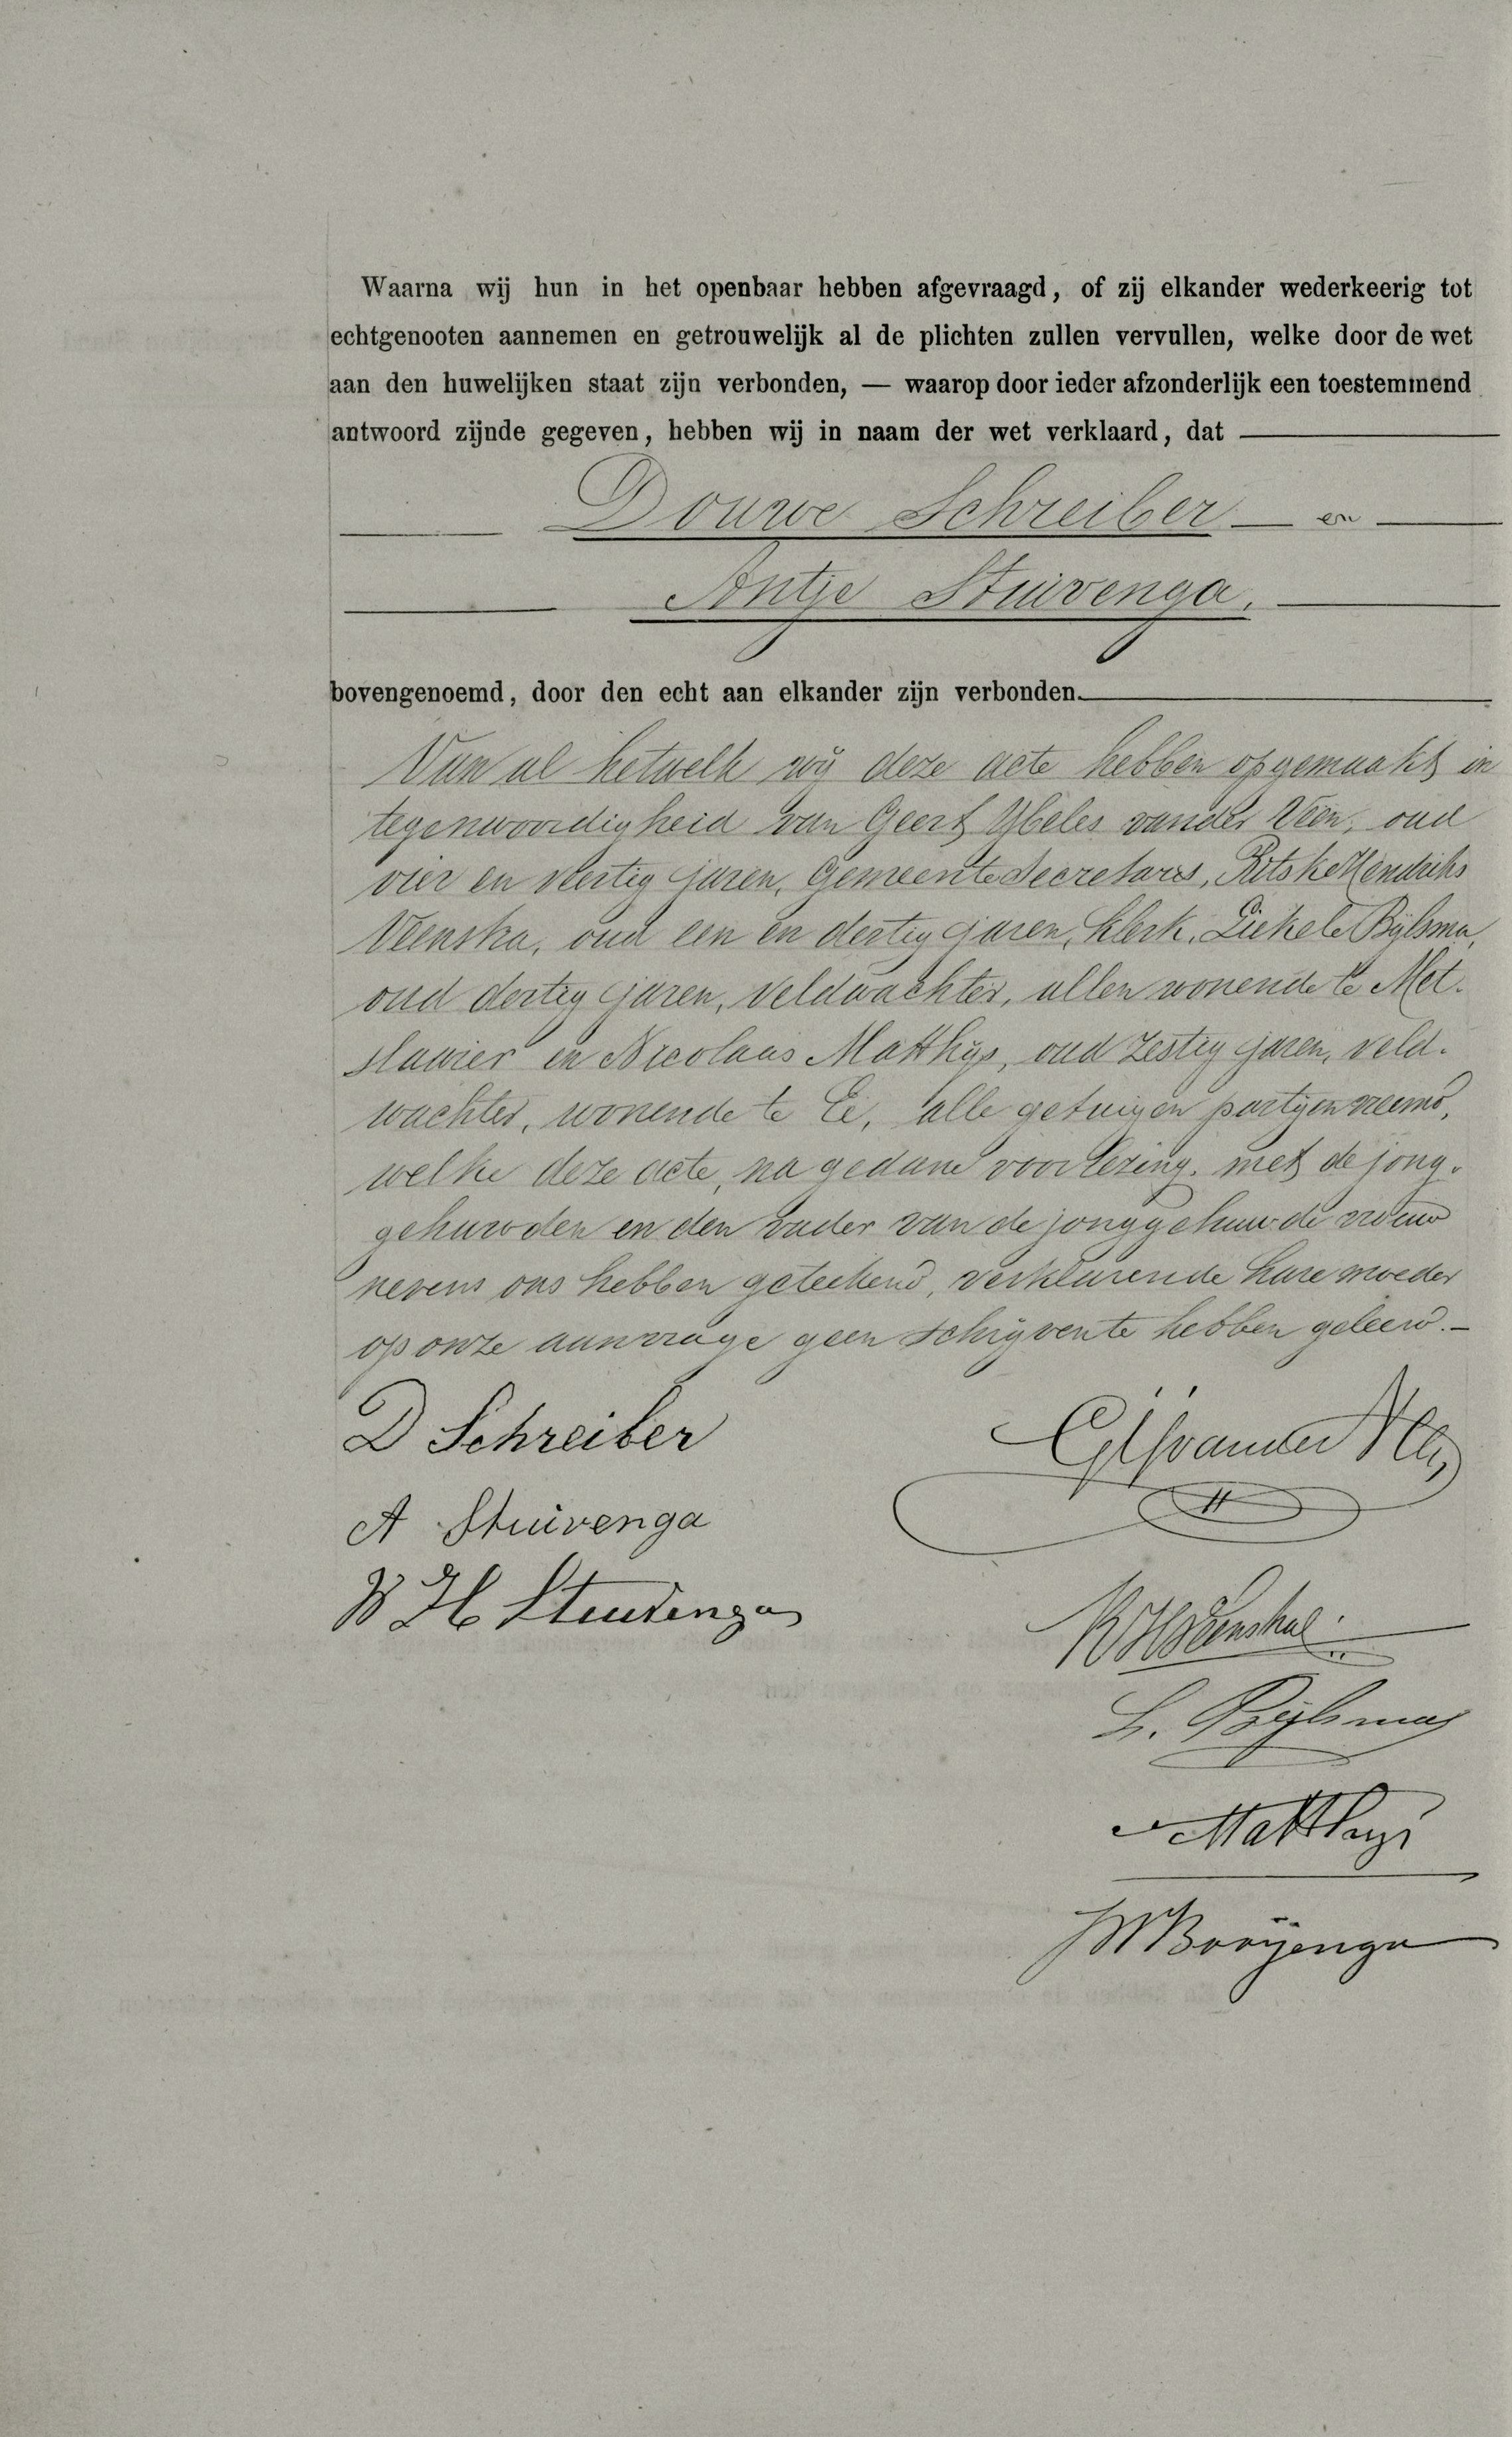 Waarna wij hun in het openbaar hebben afgevraagd, of zij elkander wederkeerig tot
echtgenooten aannemen en getrouwelijk al de plichten zullen vervullen, welke door de wet
aan den huwelijken staat zijn verbonden, — waarop door ieder afzonderlijk een toestemmend
antwoord zijnde gegeven, hebben wij in naam der wet verklaard, dat
Douwe Schreiber en
Antje Stuivenga.
bovengenoemd, door den echt aan elkander zijn verbonden.
Van al hetwelk wij deze acte hebben opgemaakt in
tegenwoordigheid van Geert Ybeles van der Veen, oud
vier en veertig jaren, Gemeente Secretaris, Ritske Hendriks
Veenstra, oud een en dertig jaren, klerk, Liekele Bijlsma,
oud dertig jaren, veldwachter, allen wonende te Met-
slawier en Nicolaas Matthijs, oud zestig jaren, veld-
wachter, wonende te Ee, alle getuigen partijen vreemd,
welke deze acte, na gedane voorlezing, met de jong-
gehuwden en den vader van de jonggehuwde vrouw
nevens ons hebben geteekend, verklarende hare moeder
op onze aanvrage geen schrijvente hebben geleerd. —
D Schreiber
A Stuivenga
W H Stuivenga
GY van der Veen
RH Veenstra
L. Bijlsma
Matthijs
Booijenga